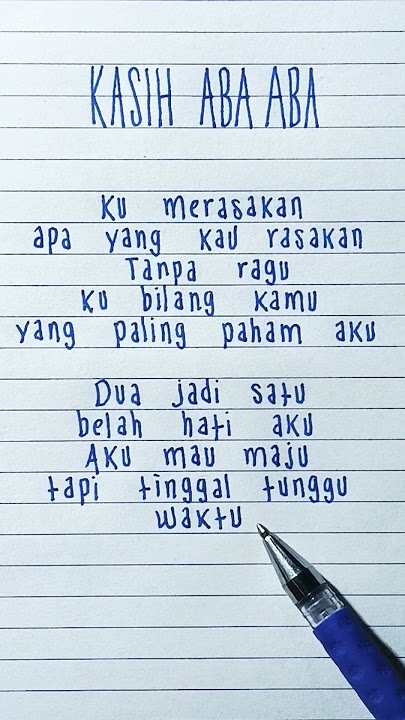 KASIH ABA ABA
Ku merasakan
apa yang kau rasakan
Tanpa ragu
ku bilang kamu
yang paling paham aku
Dua jadi satu
belah hati aku
Aku mau maju
tapi tinggal tunggu
waktu